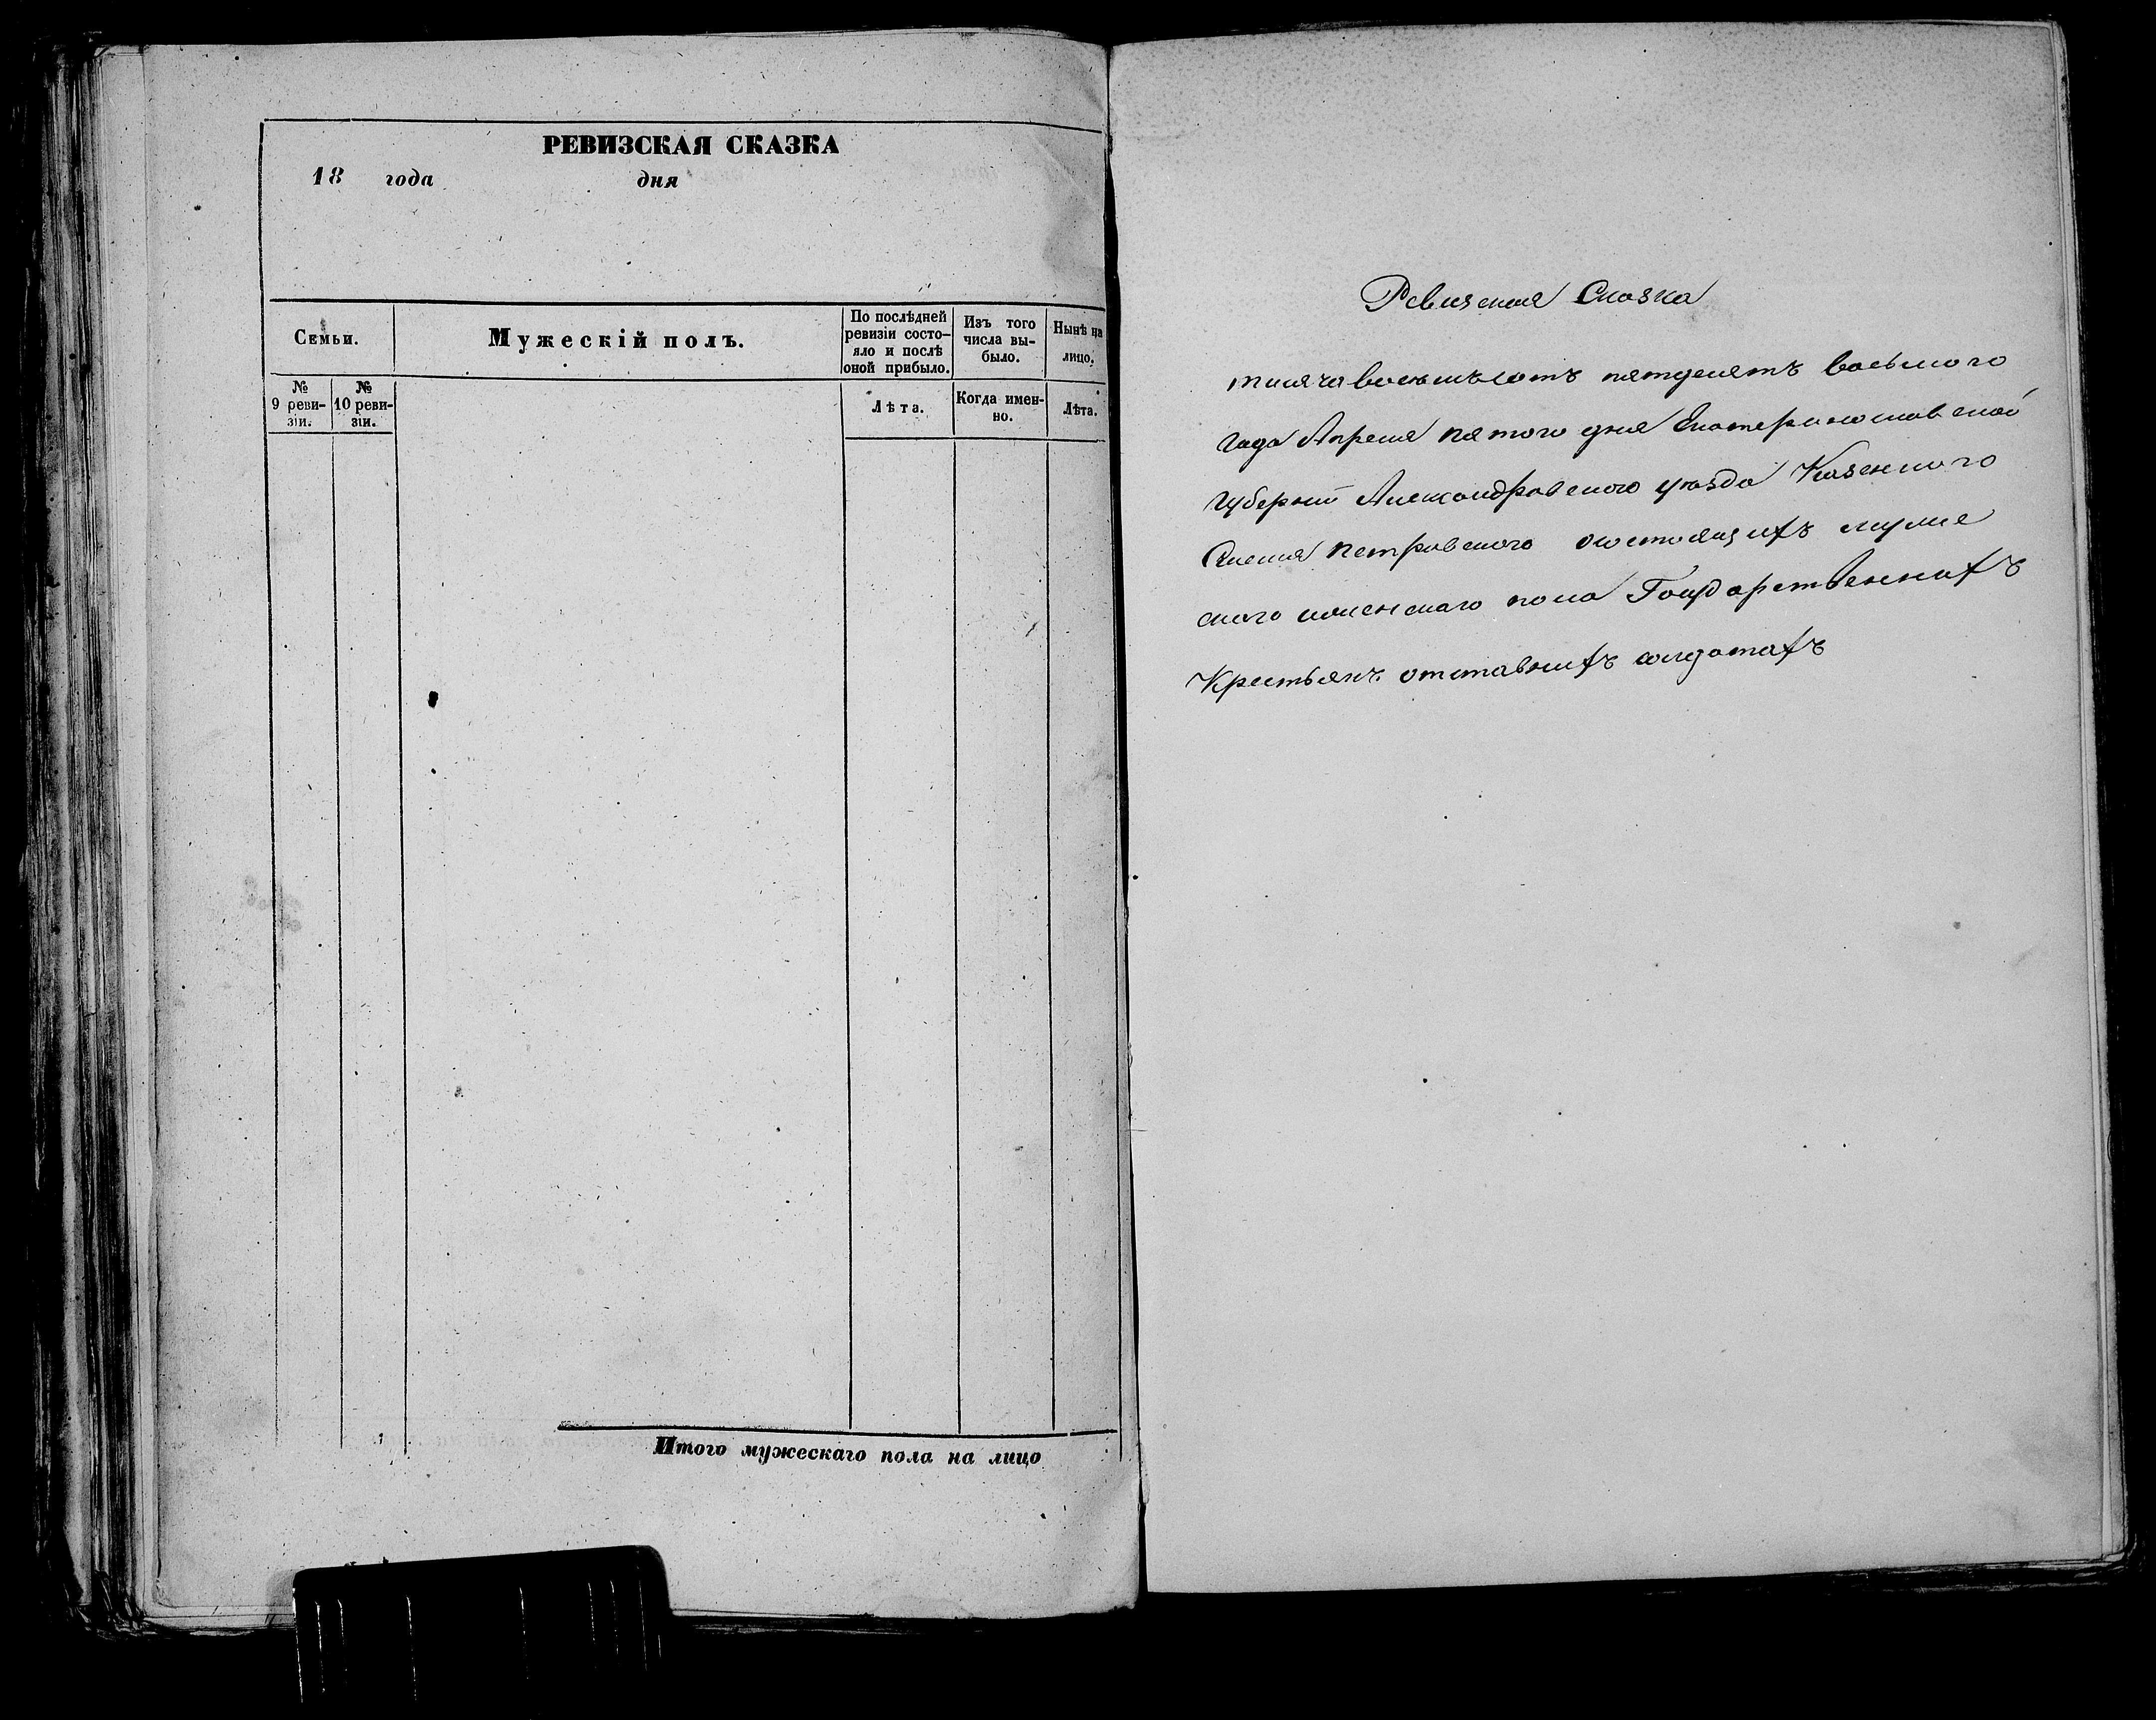 РЕВИЗСКАЯ СКАЗКА
18 года дня
Семьи.
Мужескій полъ.
По послѣдней
ревизіи состо-
яло и послѣ
оной прибыло.
Изъ того
числа вы-
было.
Нынѣ на
лицо.
№
9 реви-
зіи.
№
10 реви-
зіи.
Лѣта.
Когда имен-
но.
Лѣта.
Итого мужескаго пола на лицо
Ревизская Сказка
тисяча восемьсотъ пятдесятъ восьмого
года Апреля пятого дня Екатеринославской
губернии Александровского уезда Казенного
Селения петровского состоящихъ муже
ского женского пола Государственнихъ
Крестьянъ отставнихъ солдатахъ